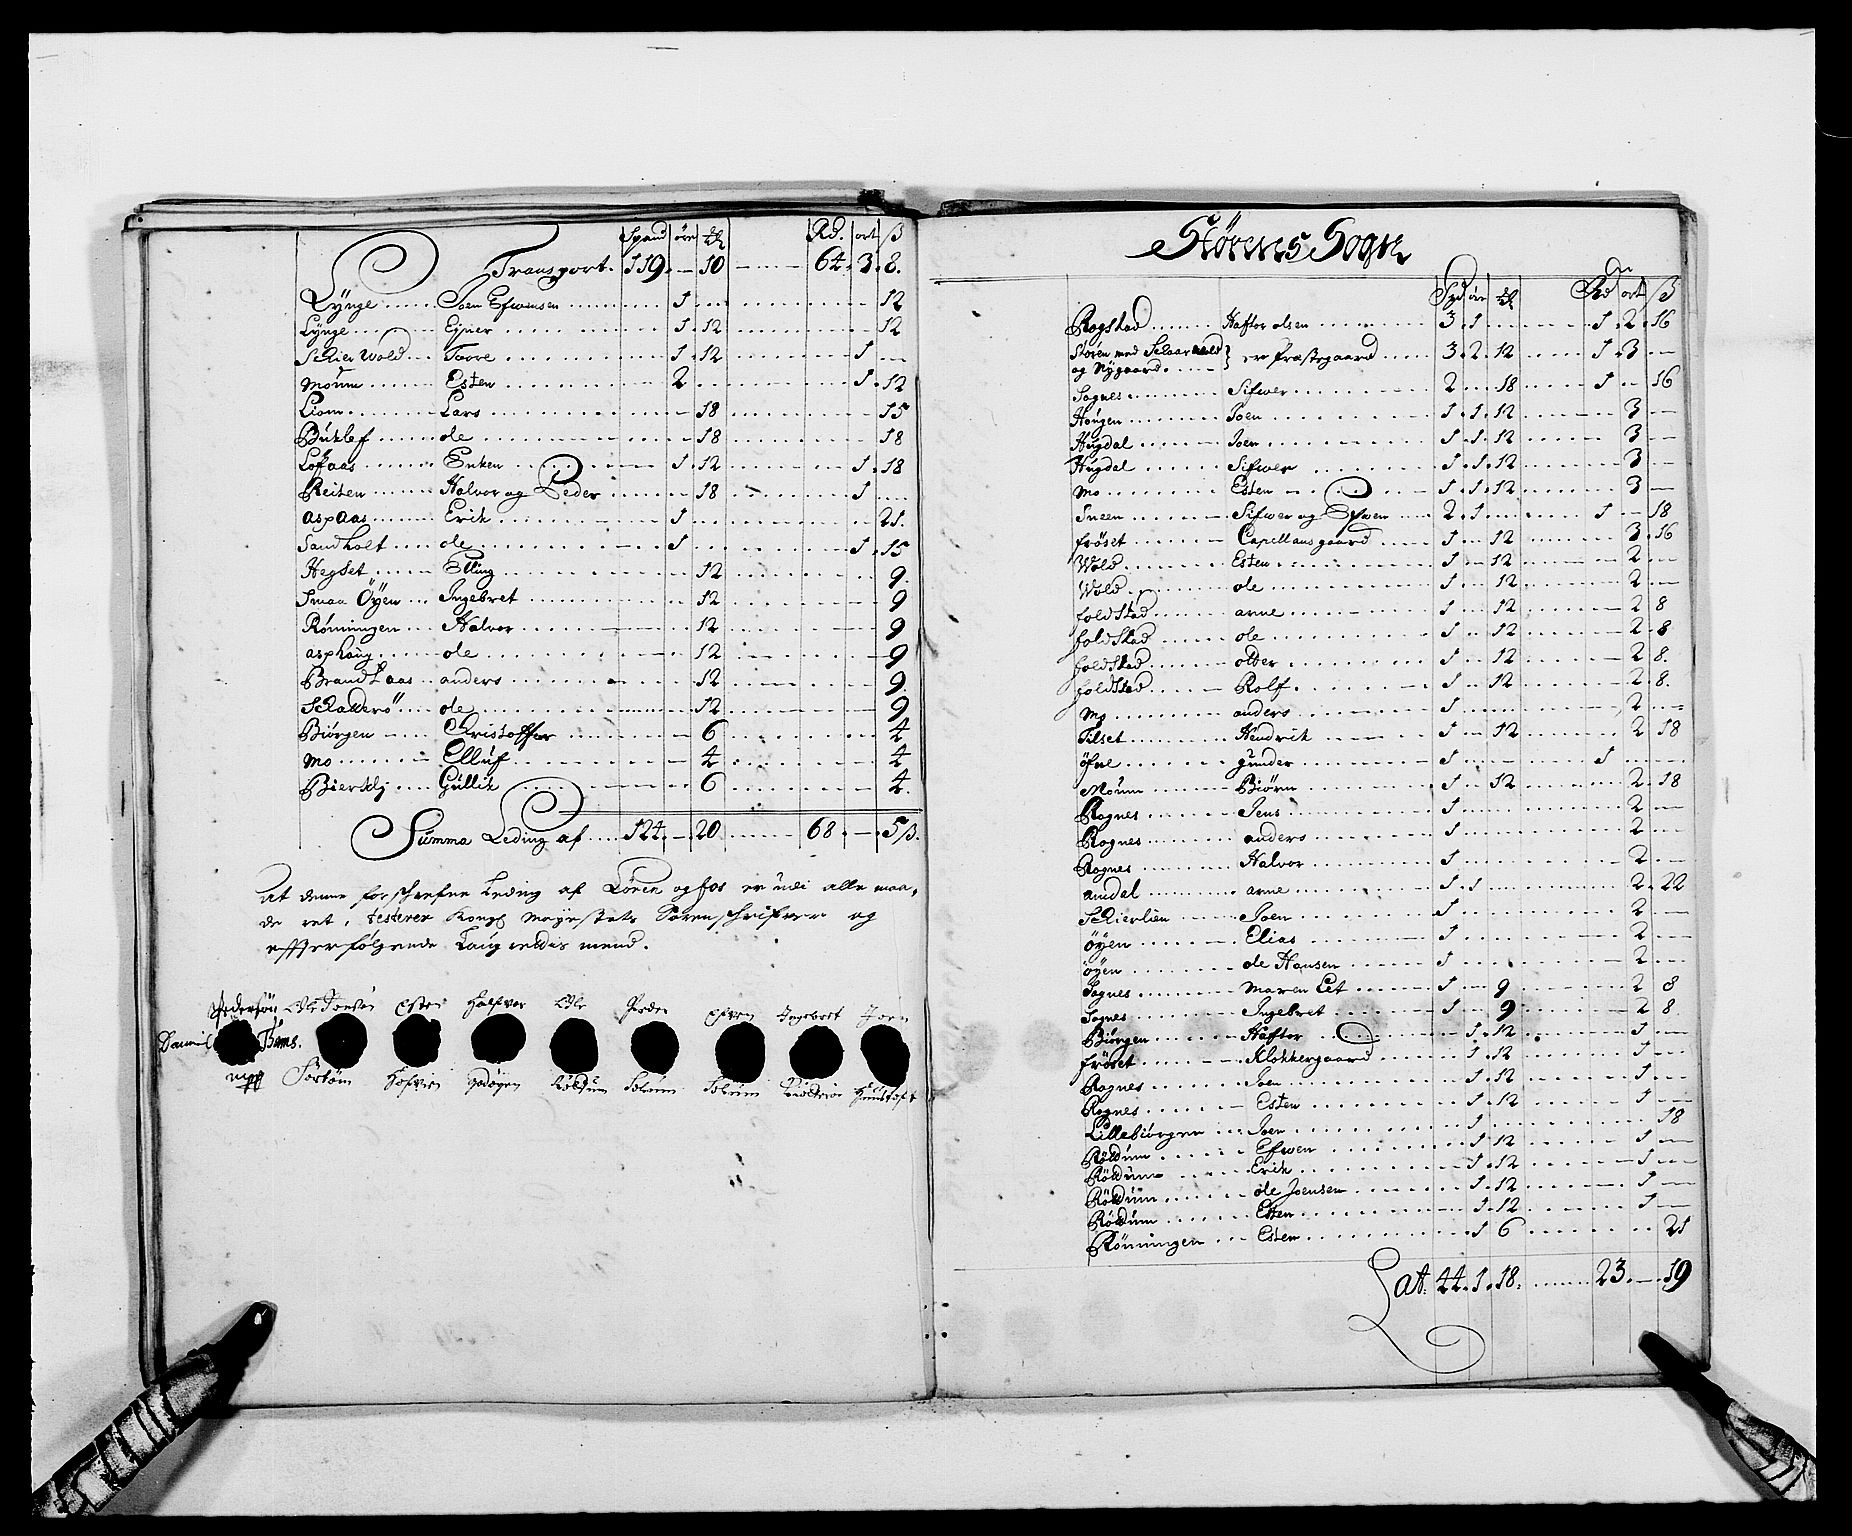 Spand øre ₰ Rd. ort ß
Transport. 119. — 10 — 64. 3. 8.
Lÿnge Joen Efwensen 1 12
Lÿnge Eÿner 1. 12 12
Schier Wold Toore 1. 12 1 —
Moum Esten 2 1. 12
Liom Lars 18 15
Buklef ole 18 18
Lofaas Enken 1. 12 1. 18
Reiten Halvor og Peder 18 1
aspaas Erik 1 21.
Sandholt ole 1 1. 15
Hegset Elling 12 9.
Smaa Öÿen Ingebret 12 9
Rönningen Halvor 12 9
asphoug ole 12 9
Brandt aas anders 12 9
ole 12 9
Biörgen Christoffer 6 4
Mo Elluf 4 4
Gullik 6 4.
Summa Leding af 124. — 20 68. — 5 ß.
at denne forschrefne Leding af og er udi alle maa-
de ret, testerer Kongl Maÿestets Sorenschrifver og
effterfølgende Laug rettis mend.
Pedersøn Ole Joensen Esten Halfvor Ole Peder Efven Ingebret Joen
Daniel Bams.
mpp Hofven Solem Solem
Størens Sogn
Spd øre ₰ Rd ort ß
Rogstad Haftor olsen 3. 1 1. 2. 16
Støren med
og Nÿgaard er Præstegaard 3. 2. 12 1. 3 —
Sognes Sifwer 2 18 1 — 16
Hougen Joen 1. 1. 12 3 —
Hugdal Joen 1. 1. 12 3 —
Hugdal Sifwer 1. 1. 12 3 —
Mo Esten 1. 1. 12 3 —
Sneen Sifwer og Efwen 2. 1 1 — 18
frøset Capellans gaard 1 12 3. 16
Wold Esten 1 — 12 2 —
Wold ole 1 12 2 —
foldstad arne 1 12 2 8
foldstad ole 1 12 2. 8
foldstad older 1 12 2 8.
foldstad Rolf 1 12 2. 8.
Mo anders 1 2 —
Tilset Hendrik 1 — 12 2. 18
öfne gunder 1 1
Moum Biörn 1 12 2. 18
Rognes Jens 1 2 —
Rognes anders 1 2 —
Rognes Halvor 1 2 —
amdal arne 1. 1 2. 22
Schierlien Joen 1 2 —
öÿen Elias 1 2 —
öÿen ole Hansen 1 2 —
Sognes Maren Eet 1 — 9 2 8
Sognes Ingebret 1 — 9 2 8
Biörgen Haftor 1. 12 1 —
frøset Klokkergaard 1. 12 1 —
Rognes Joen 1. 12 1 —
Rognes Esten 1. 12 1 —
Lillebiörgen Joen 1 18
Röldum Efwen 1. 12 1 —
Röldum Erik 1. 12 1 —
Röldum ole Joensen 1. 12 1 —
Röldum Esten 1. 12 1 —
Rönningen Esten 1 6 21
Lat. 44. 1. 18. 23. — 19